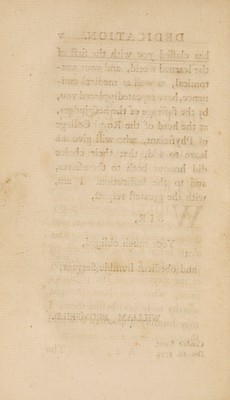 DEDICATION. v
has classed you with the first of
the learned world, and your ana-
tomical, as well as medical emi-
nence, have repeatedly placed you,
by the suffrages of the best judges,
at the head of the Royal College
of Physicians, who will give me
leave to add, that their choice
did honour both to themselves,
and to the Institution. I am,
with the greatest respect,
SIR,
Your much obliged,
and obedient humble servant,
WILLIAM